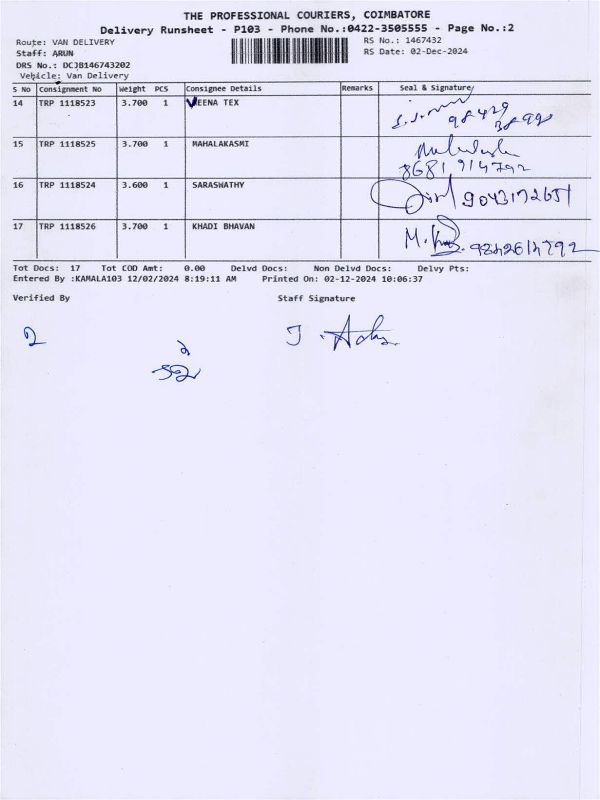 THE PROFESSIONAL COURIERS, COIMBATORE
Delivery Runsheet - P103 - Phone No.:0422-3505555 - Page No.:2
Route: VAN DELIVERY
RS No.: 1467432
Staff: ARUN
RS Date: 02-Dec-2024
DRS No.: DCJB146743202
Vehicle: Van Delivery
S No Consignment No Weight PCS Consignee Details Remarks Seal & Signature
14 TRP 1118523 3.700 1 VEENA TEX
98429
15 TRP 1118525 3.700 1 MAHALAKASMI
8681914792
16 TRP 1118524 3.600 1 SARASWATHY 9043172651
17 TRP 1118526 3.700 1 KHADI BHAVAN 9842614792
Tot Docs: 17 Tot COD Amt: 0.00 Delvd Docs: Non Delvd Docs: Delvy Pts:
Entered By :KAMALA103 12/02/2024 8:19:11 AM Printed On: 02-12-2024 10:06:37
Verified By Staff Signature